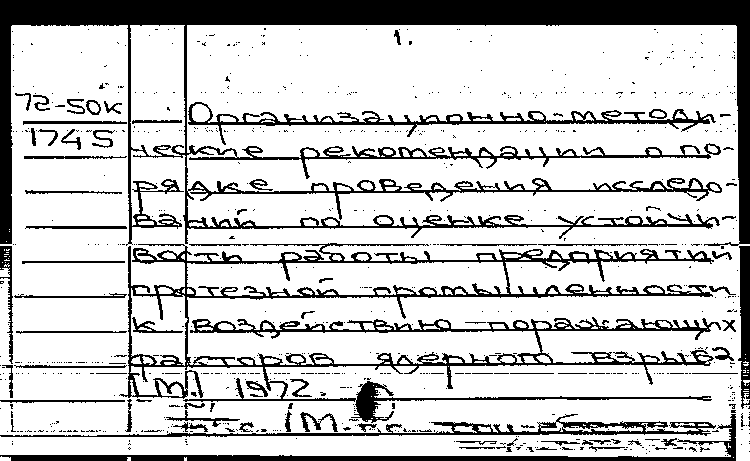 1.
72-50к
1745
Организационно-методи-
ческие рекомендации о по-
рядке проведения исследо-
ваний по оценке устойчи-
вости работы предприятий
протезной промышленности
к воздействию поражающих
факторов ядерного взрыва.
[М.] 1972.